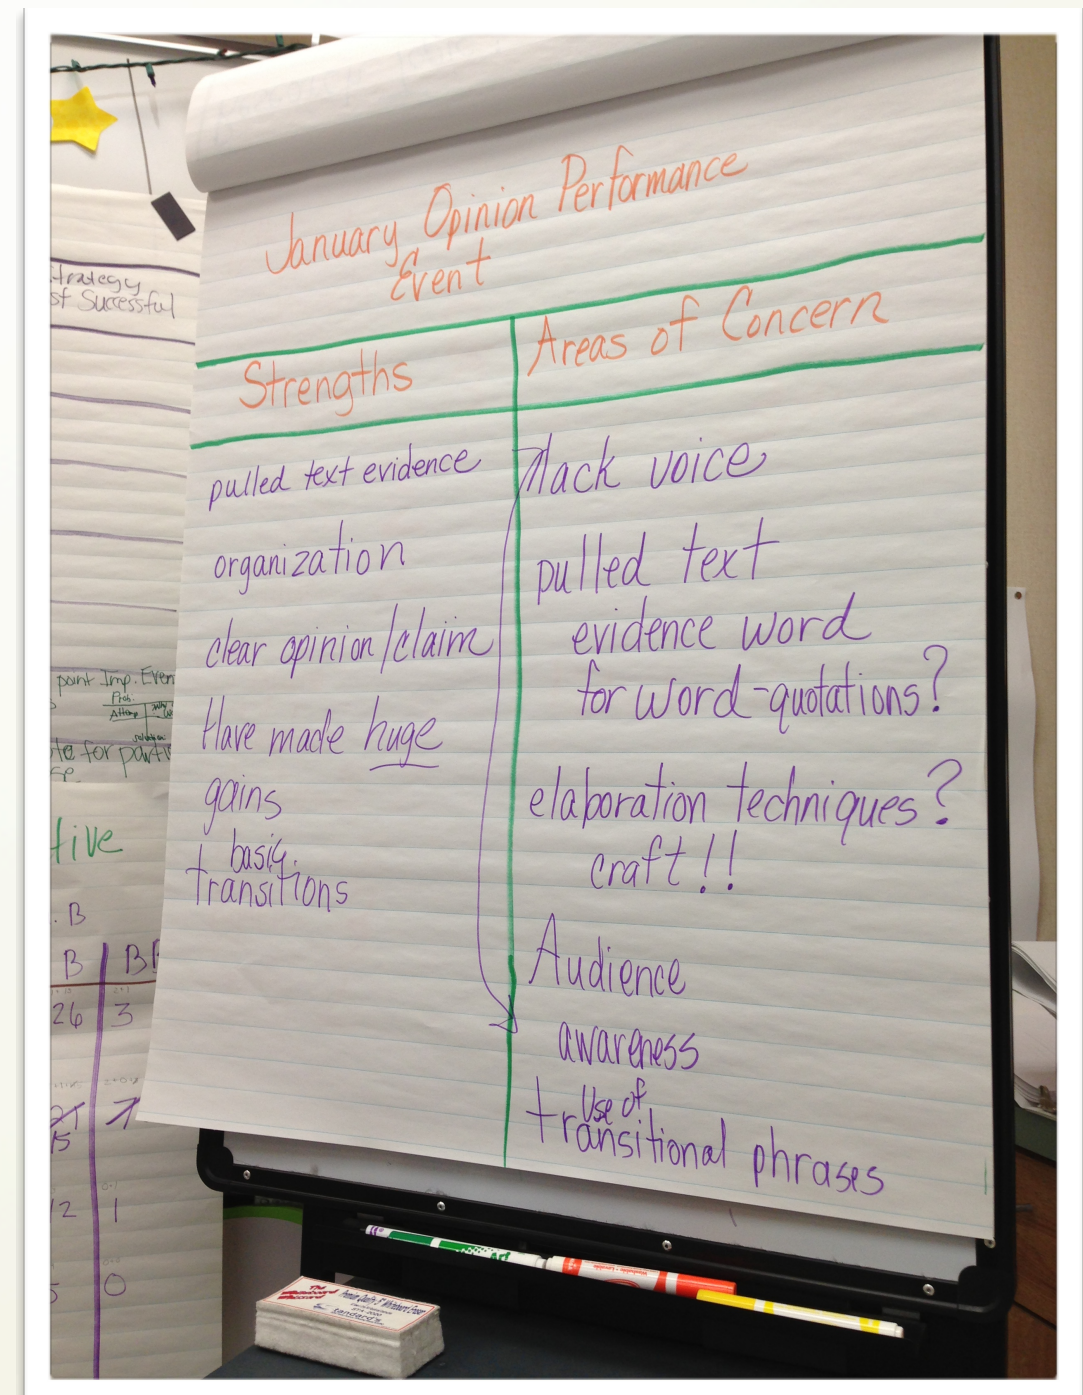 January Opinion Performance
Event
Strengths
pulled text evidence
organization
clear opinion/claim
Have made huge
gains
basic
transitions
Areas of Concern
lack voice
pulled text
evidence word
for word-quotations?
elaboration techniques?
craft!!
Audience
awareness
Use of
transitional phrases
trategy
st Successful
point Imp. Even
Prob.
Attemp
solution
te for parti
tive
. B
B
26
3
15
12
1
0
The
Premium Quality